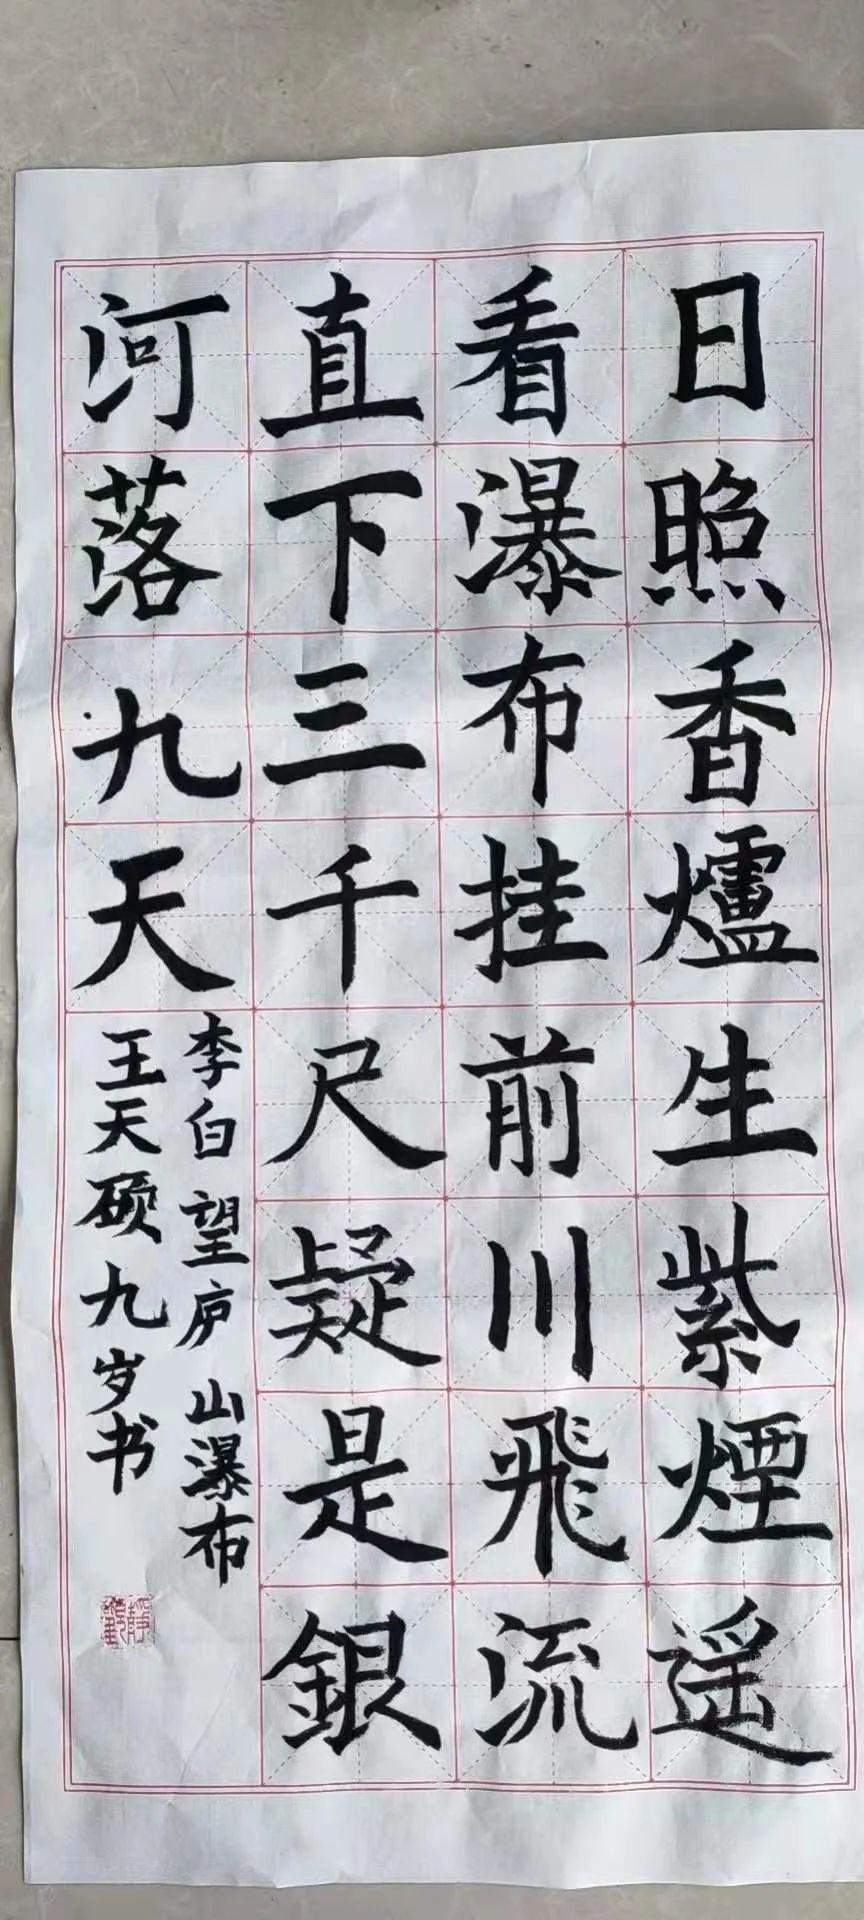 日照香爐生紫煙遥
看瀑布挂前川飛流
直下三千尺疑是銀
河落九天
李白望庐山瀑布
王天硕九岁书